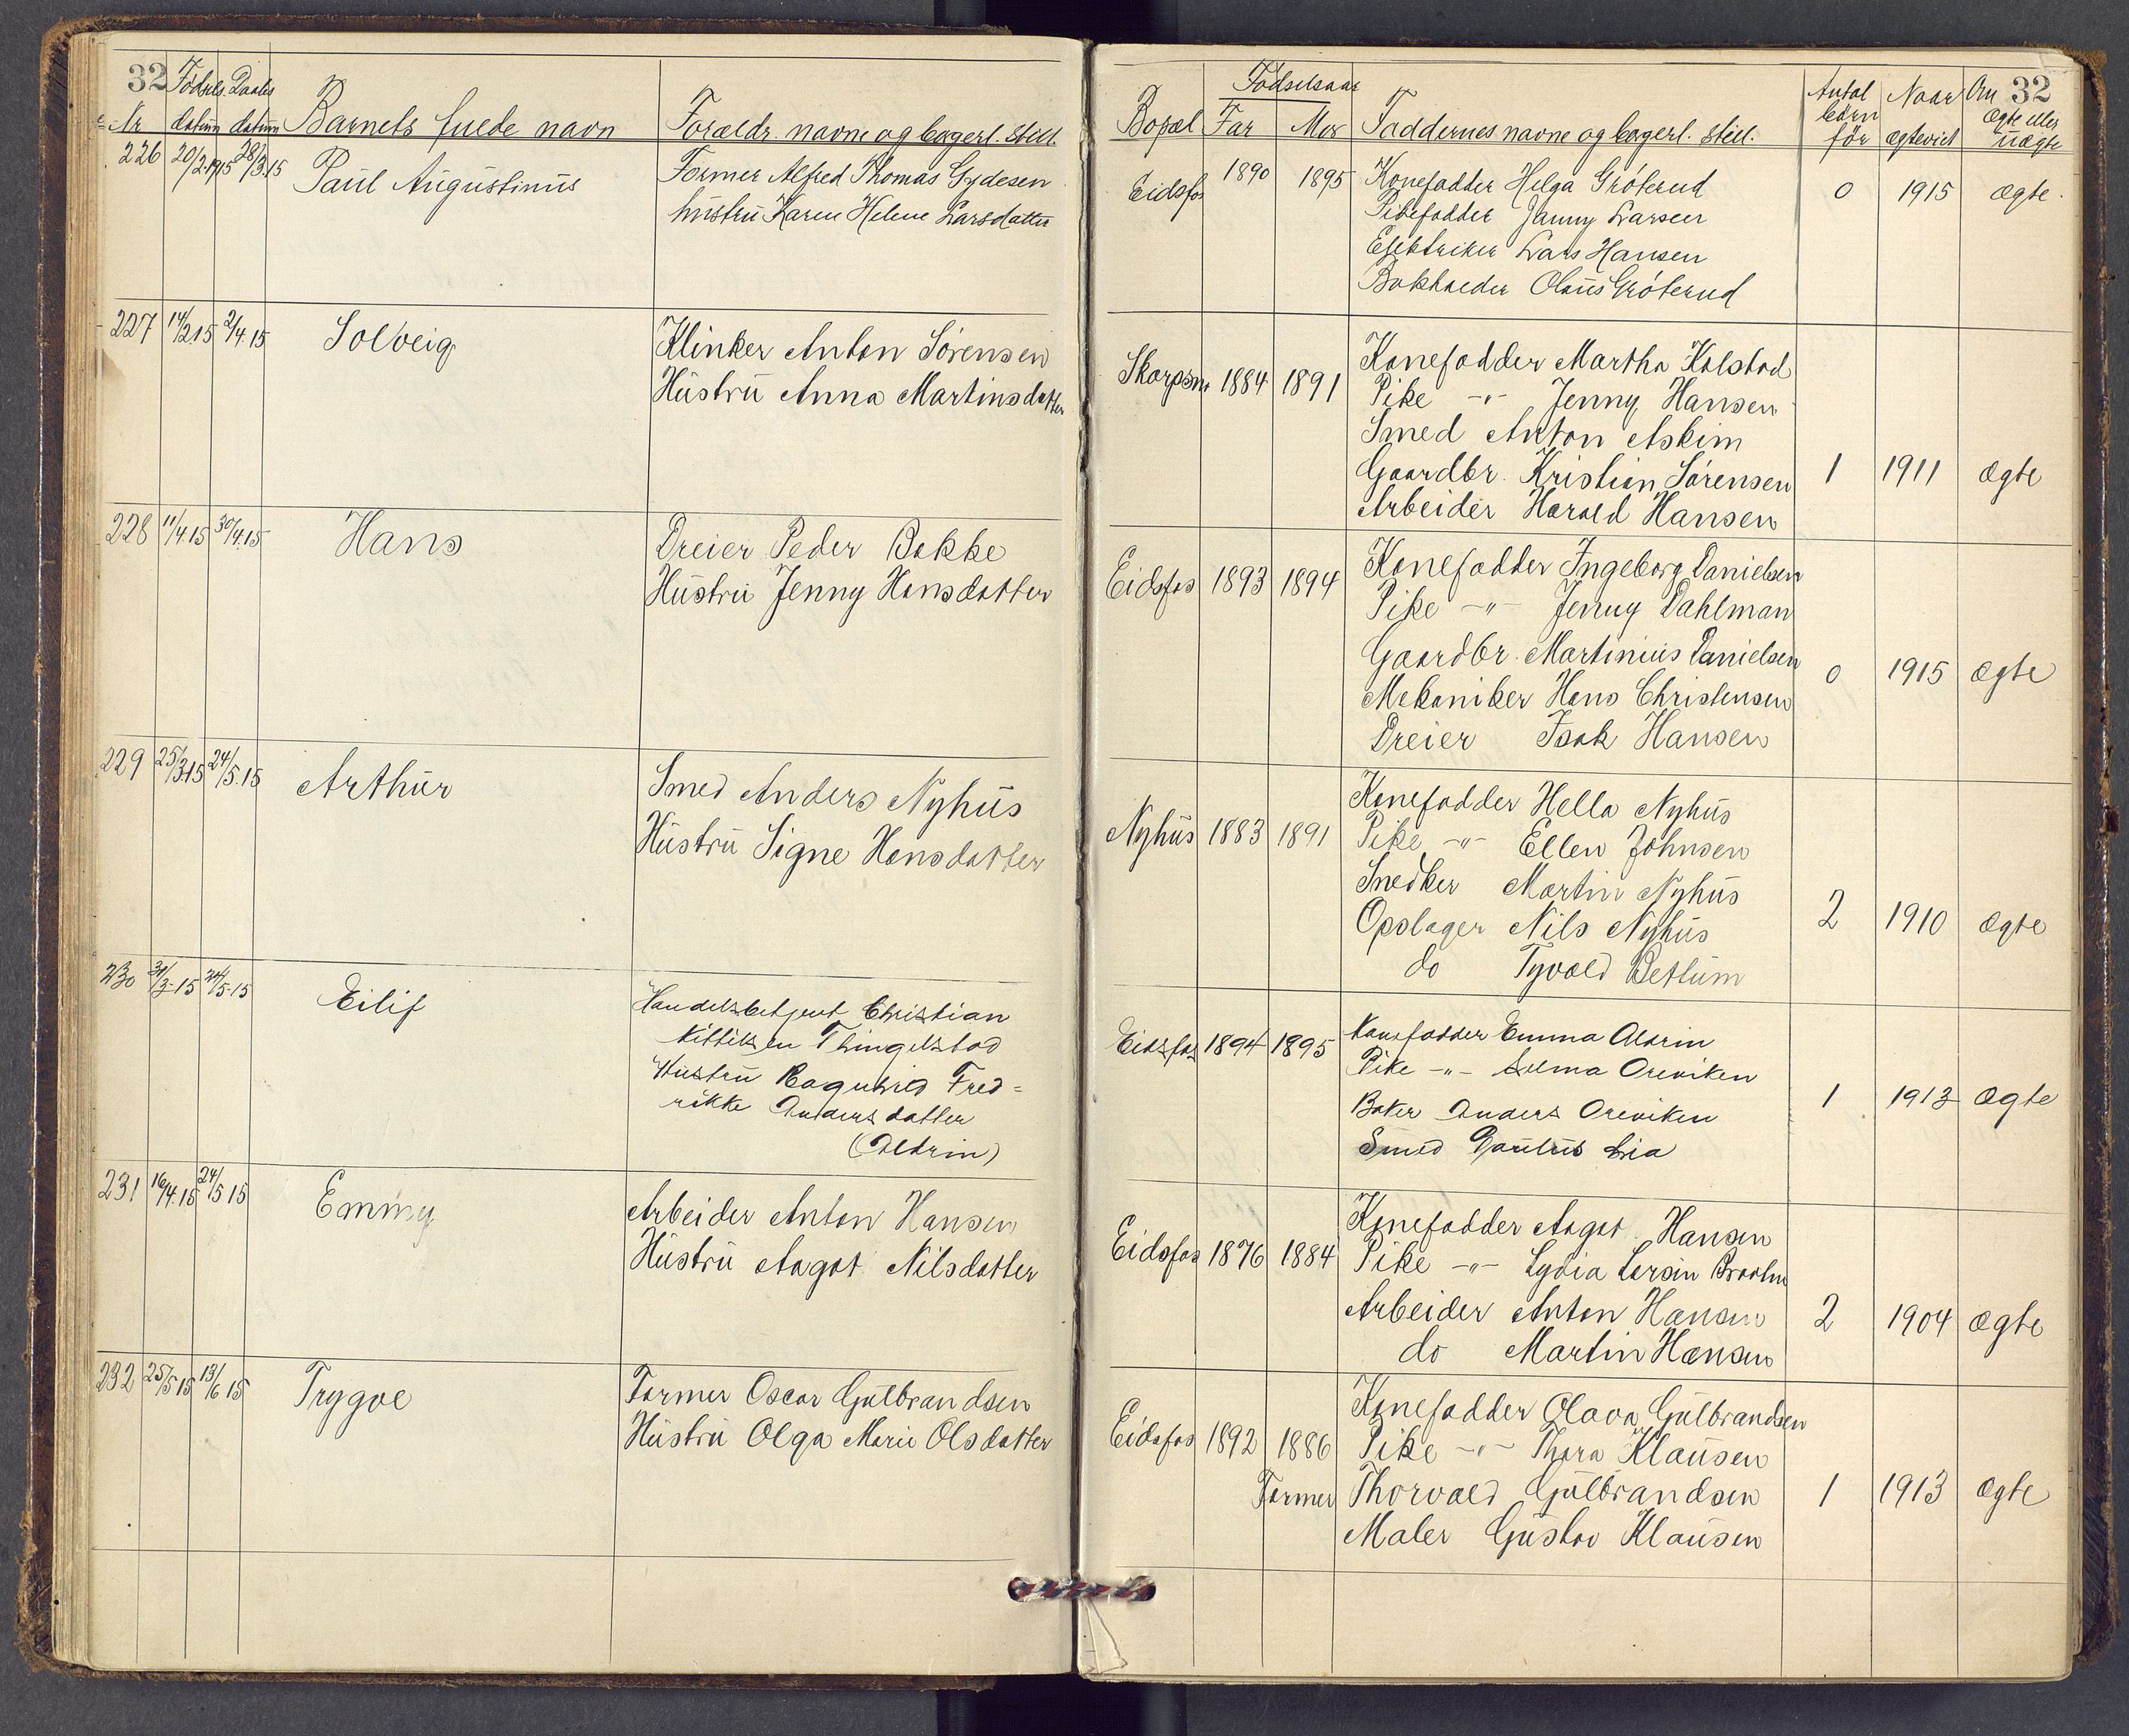 32
Fødsels. Daabs
Nr datum datum Barnets fulde navn Forældr. navne og borgerl. still.
226 20/2.1915 28/3.15 Paul Augustinus Former Alfred Thomas Gydesen
hustru Karen Helene Larsdatter
227 14/2.15 2/4.15 Solveig Klinker Anton Sørensen
Hustru Anna Martinsdatter
228 11/4.15 30/4.15 Hans Dreier Peder Bakke
Hustru Jenny Hansdatter
229 25/3.15 24/5.15 Arthur Smed Anders Nyhus
Hustru Signe Hansdatter
230 31/3.15 24/5.15 Eilif Handelsbetjent Christian
Kittilsen Thingelstad
Hustru Ragnhild Fred=
rikke Andersdatter
(Aldrin)
231 16/4.15 24/5 15 Emmy Arbeider Anton Hansen
Hustru Aagot Nilsdatter
232 25/5 15 13/6 15 Trygve Former Oscar Gulbrandsen
Hustru Olga Marie Olsdatter
32
Bopæl Fødselsaar Far Mor Faddernes navne og borgerl. still. Antal børn før Naar ægteviet Om ægte eller uægte
Eidsfos 1890 1895 Konefadder Helga Gröterud 0 1915 ægte.
Pikefadder Jenny Larsen
Elektriker Lars Hansen
Bokholder Olaus Gröterud
Skarpsno 1884 1891 Konefadder Martha Kolstad
Pike -"- Jenny Hansen
Smed Anton Askim
Gaardbr. Kristian Sørensen 1 1911 ægte
Arbeider Harald Hansen
Eidsfos 1893 1894 Konefadder Ingeborg Danielsen
Pike -"- Jenny Dahlman
Gaardbr. Martinius Danielsen 0 1915 ægte
Mekaniker Hans Christensen
Dreier Isak Hansen
Nyhus 1883 1891 Konefadder Hella Nyhus
Pike -"- Ellen Johnsen
Snedker Martin Nyhus
Opslager Nils Nyhus 2 1910 ægte
do Tyvald Betlum
Eidsfos 1894 1895 Konefadder Emma Aldrin
Pike -"- Selma Oreviken
Baker Anders Oreviken 1 1913 ægte
Smed Paulus Lia
Eidsfos 1876 1884 Konefadder Aagot Hansen
Pike -"- Lydia
Arbeider Anton Hansen 2 1904 ægte
do Martin Hansen
Eidsfos 1892 1886 Konefadder Olava Gulbrandsen
Pike -"- Thora Klausen
Former Thorvald Gulbrandsen 1 1913 ægte
Maler Gustav Klausen